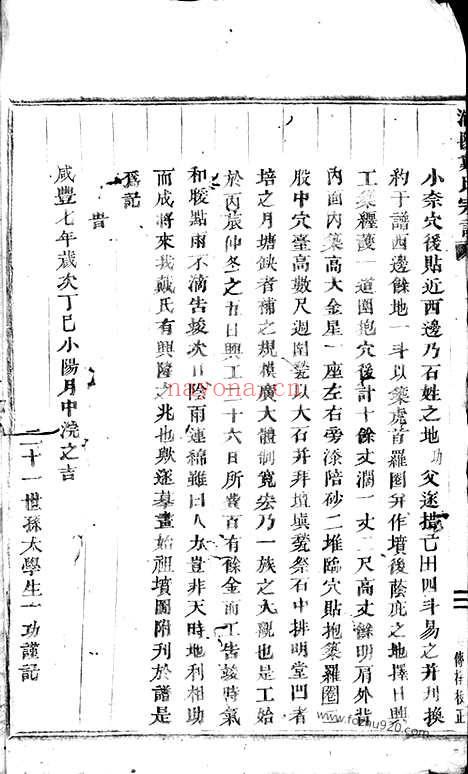 小奈穴後貼近西邊乃石姓之地功父遂措己田四斗易之并刋換
約于譜西邊餘地一斗以築虎首羅圈弁作墳後蔭庇之地擇日興
工築纙護一道圍抱穴後計十餘丈濶一丈二尺高丈餘明肩外背
內面內築高大金星一座左右旁添陪砂二堆臨穴貼抱築羅圈一
股中穴臺高數尺週圍甃以大石并拜墳與甃祭石中排明堂凹者
培之月塘缺者補之規模廣大體制寛宏乃一族之大觀也是工始
於丙辰仲冬之五日興工二十六日所費百有餘金而工告竣時氣
和暖點雨不滴告竣次日陰雨連綿雖曰人力豈非天時地利相助
而成將來我戴氏有興隆之兆也歟遂摹畫始祖墳圖附刊於譜是
爲記
旹
咸豐七年歲次丁巳小陽月中浣之吉
二十一世孫太學生一功謹記
氏宗譜
二
傳梓校正
nayona.cn
www.foshu920.com